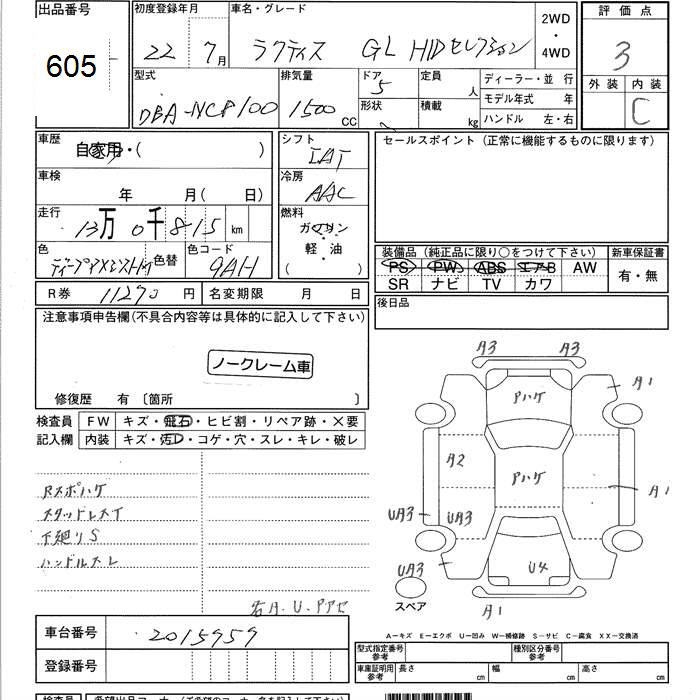 出品番号 初度登録年月 車名・グレード 2WD・4WD 評価点
605 22年 7月 ラクティス GL HIDセレクション 3
外装 内装
C
型式 排気量 ドア 定員 ディーラー・並行
DBA-NCP100 1500CC 5 人 モデル年式 年
形状 積載 kg ハンドル 左・右
車歴 シフト セールスポイント(正常に機能するものに限ります)
自家用・( ) IAT
車検 冷房
年 月(日) AAC
走行 燃料
13万0千815km ガソリン
軽・油
( )
色 色替 色コード 装備品(純正品に限り○をつけて下さい) 新車保証書
9AH PS PW ABS エアB AW 有・無
SR ナビ TV カワ
R券 11270円 名変期限 月 日 後日品
注意事項申告欄(不具合内容等は具体的に記入して下さい)
ノークレーム車
修復歴 有〔箇所 〕
検査員 FW キズ・飛石・ヒビ割・リペア跡・×要
記入欄 内装 キズ・汚レ・コゲ・穴・スレ・キレ・破レ
A3 A3
Pハゲ A1
A2 Pハゲ A1
UA3 UA3
UA3 U4
スペア A1
Rスポハゲ
スタッドレスT
下廻りS
ハンドルスレ
右A.U.Pアセ
A―キズ E―エクボ U―凹み W―補修跡 S―サビ C―腐食 XX―交換済
車台番号 2015959
登録番号
型式指定番号 参考 種別区分番号 参考
車庫証明用 参考 長さ cm 幅 cm 高さ cm